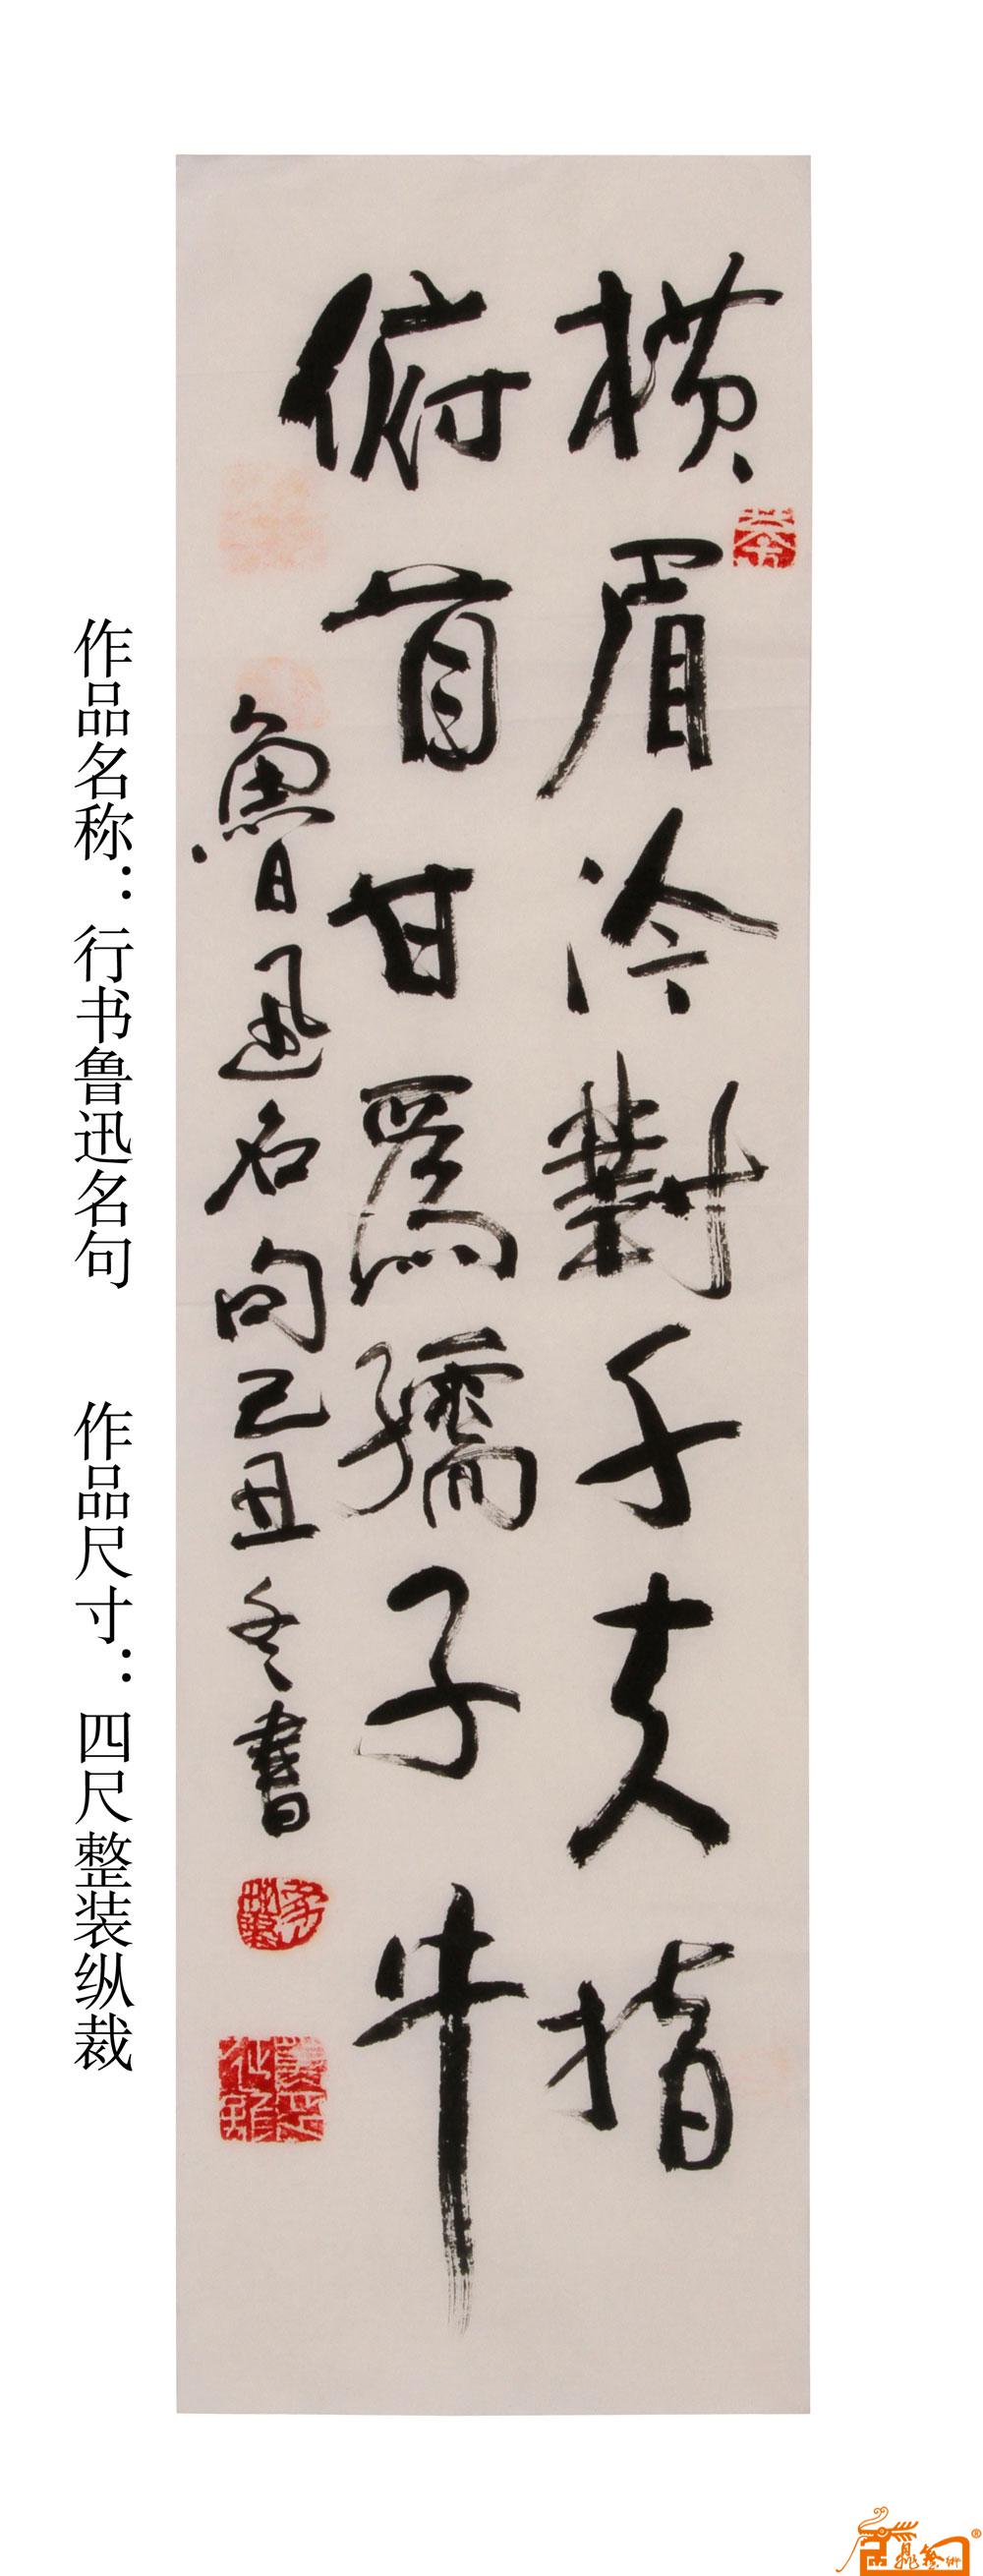 橫眉冷對千夫指
俯首甘為孺子牛
魯迅名句己丑冬書
作品名称：行书鲁迅名句 作品尺寸：四尺整装纵裁